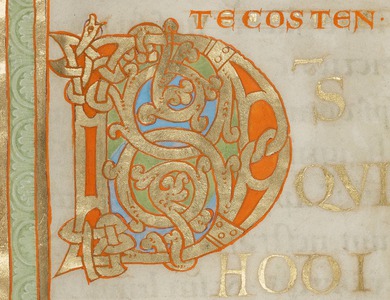 TECOSTEN:
D S̄
QVI
HODI